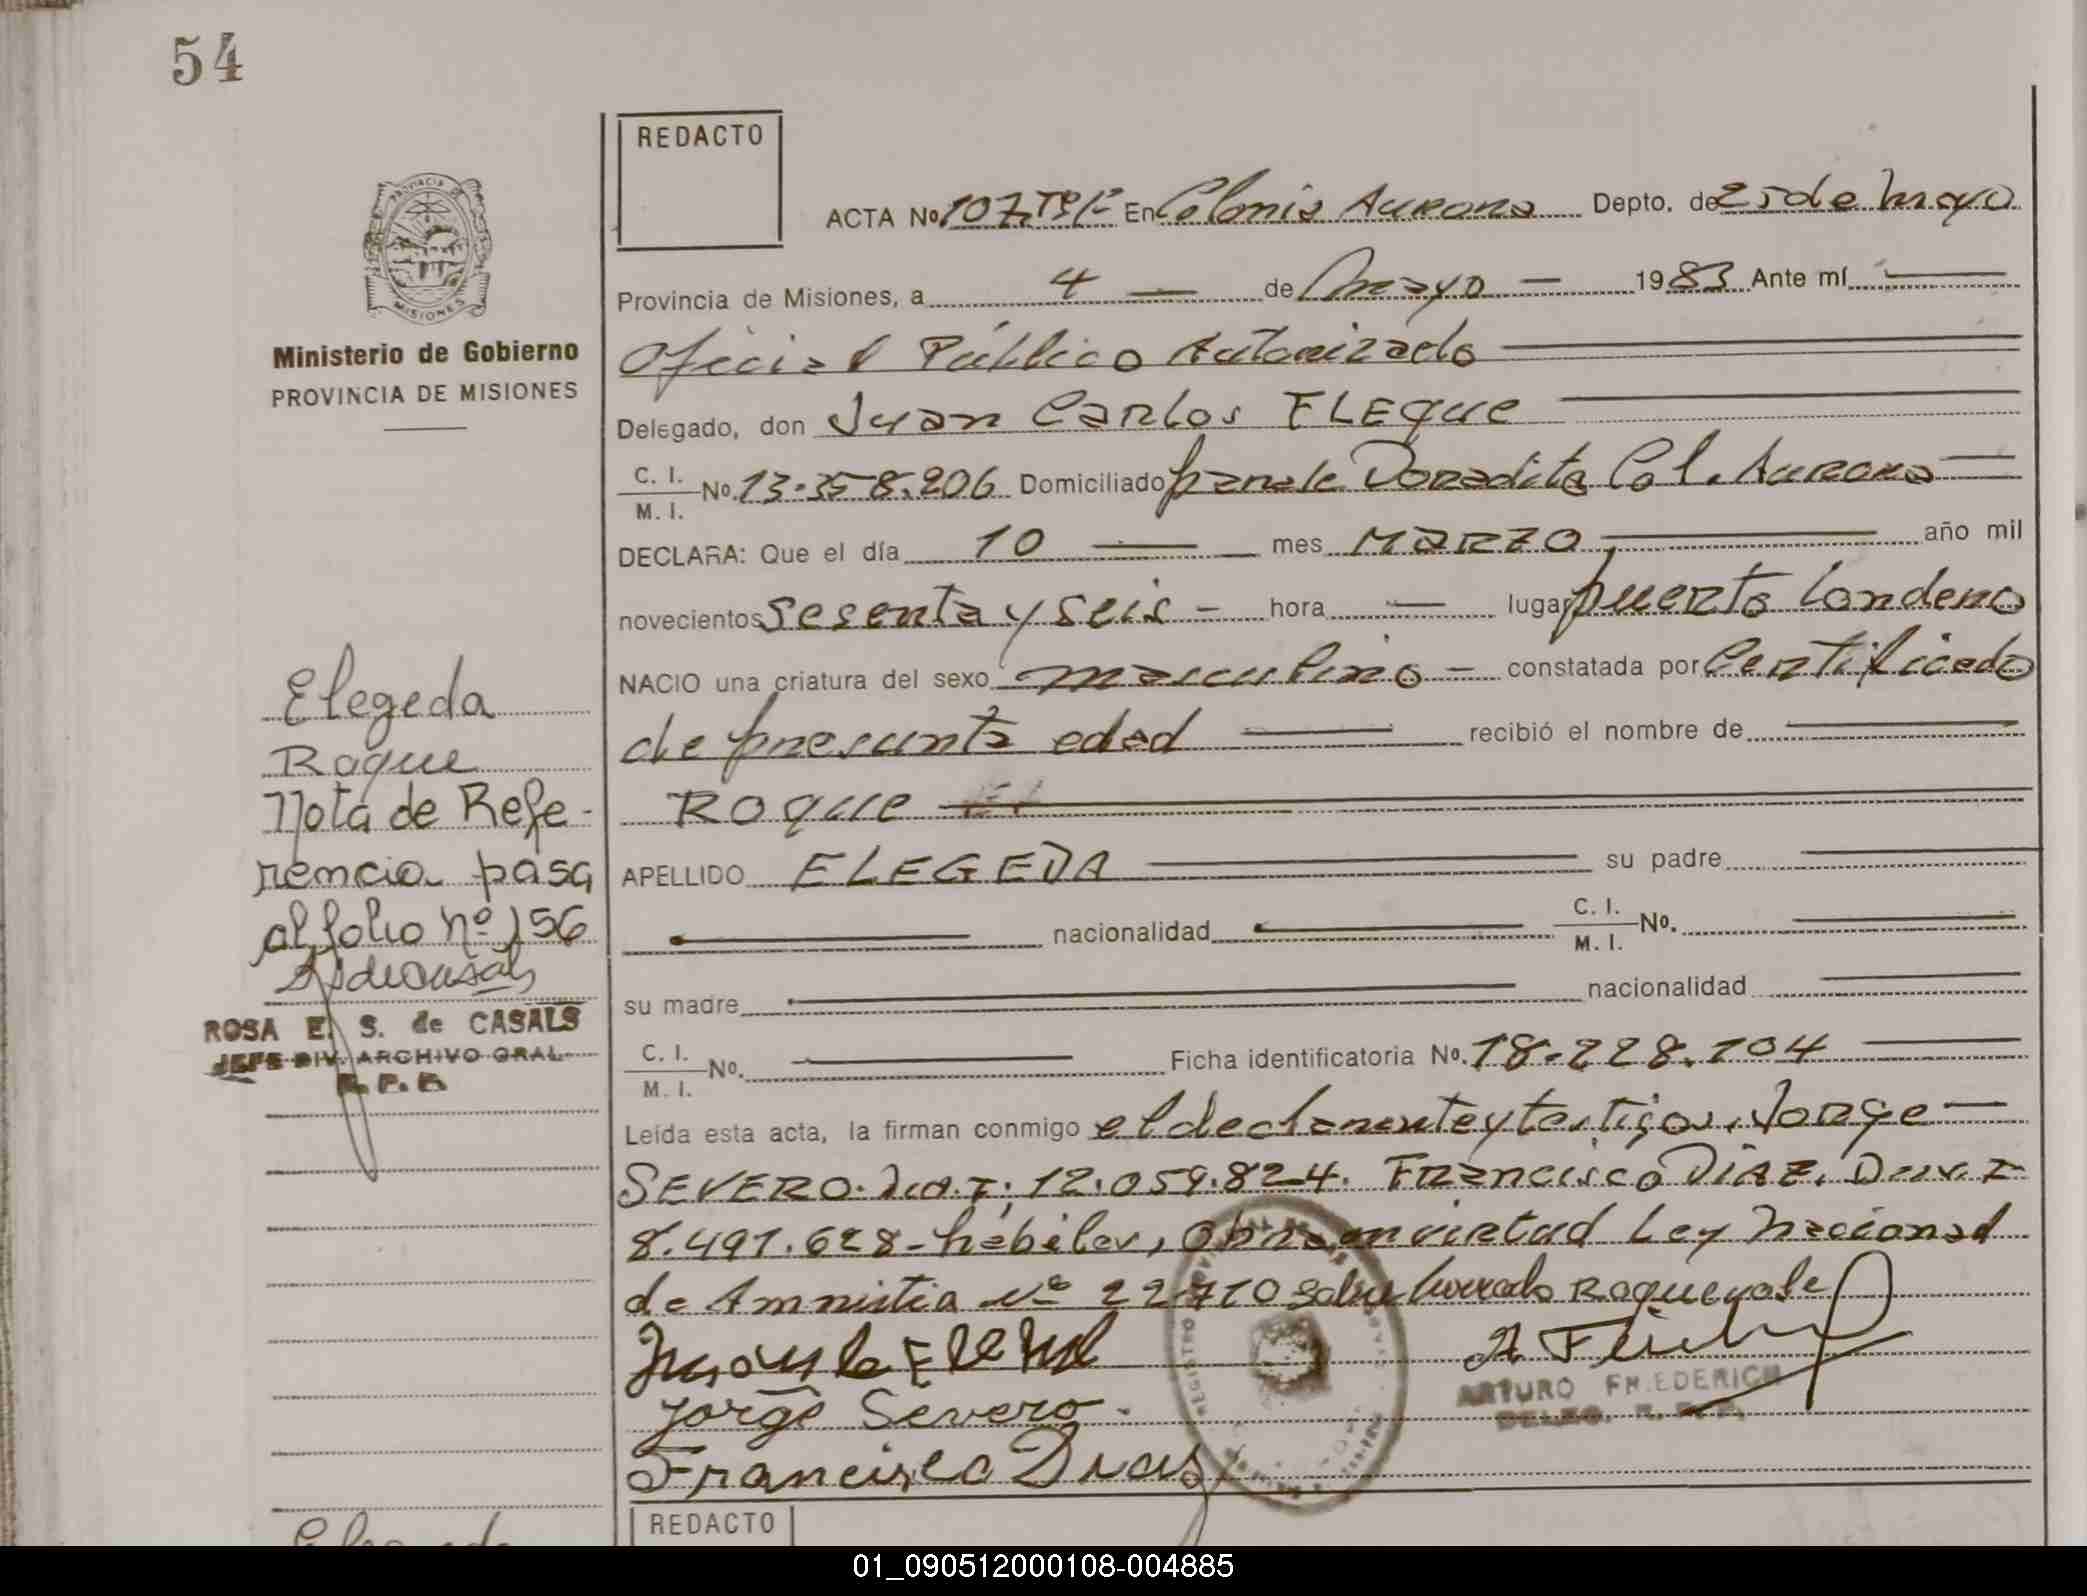 54
REDACTO
ACTA No. 107 Tº 1º En Colonia Aurora Depto. de 25 de Mayo
PROVINCIA DE
MISIONES
Provincia de Misiones, a 4 — de Mayo — 1983 Ante mí —
Ministerio de Gobierno
PROVINCIA DE MISIONES
Oficial Público Autorizado
Delegado, don Juan Carlos FLEque
C. I.
M. I.
No. 13.358.206 Domiciliado Doradito Col. Aurora —
DECLARA: Que el día 10 — mes MARZO — año mil
novecientos Sesenta y seis - hora — lugar puerto Londero
NACIO una criatura del sexo masculino - constatada por Certificado
de presunta edad — recibió el nombre de —
ROque
APELLIDO ELEGEDA — su padre —
— nacionalidad — C. I.
M. I. No. —
su madre — nacionalidad —
C. I.
M. I. No. — Ficha identificatoria No. 18.228.104 —
Leída esta acta, la firman conmigo el declarante y testigos, Jorge —
SEVERO. 12.059.824. Francisco DIAZ.
8.491.628 - hábiles, en virtud Ley Nacional
de Amnistia Nº 22.710 Sobre borrado Roque vale
Jorge Severo.
Francisco Diaz
ARTURO FRIEDERICH
Elegeda
Roque
Nota de Refe-
rencia pasa
al folio nº 156
ROSA E. S. de CASALS
JEFE DIV. ARCHIVO GRAL.
REDACTO
01_090512000108-004885